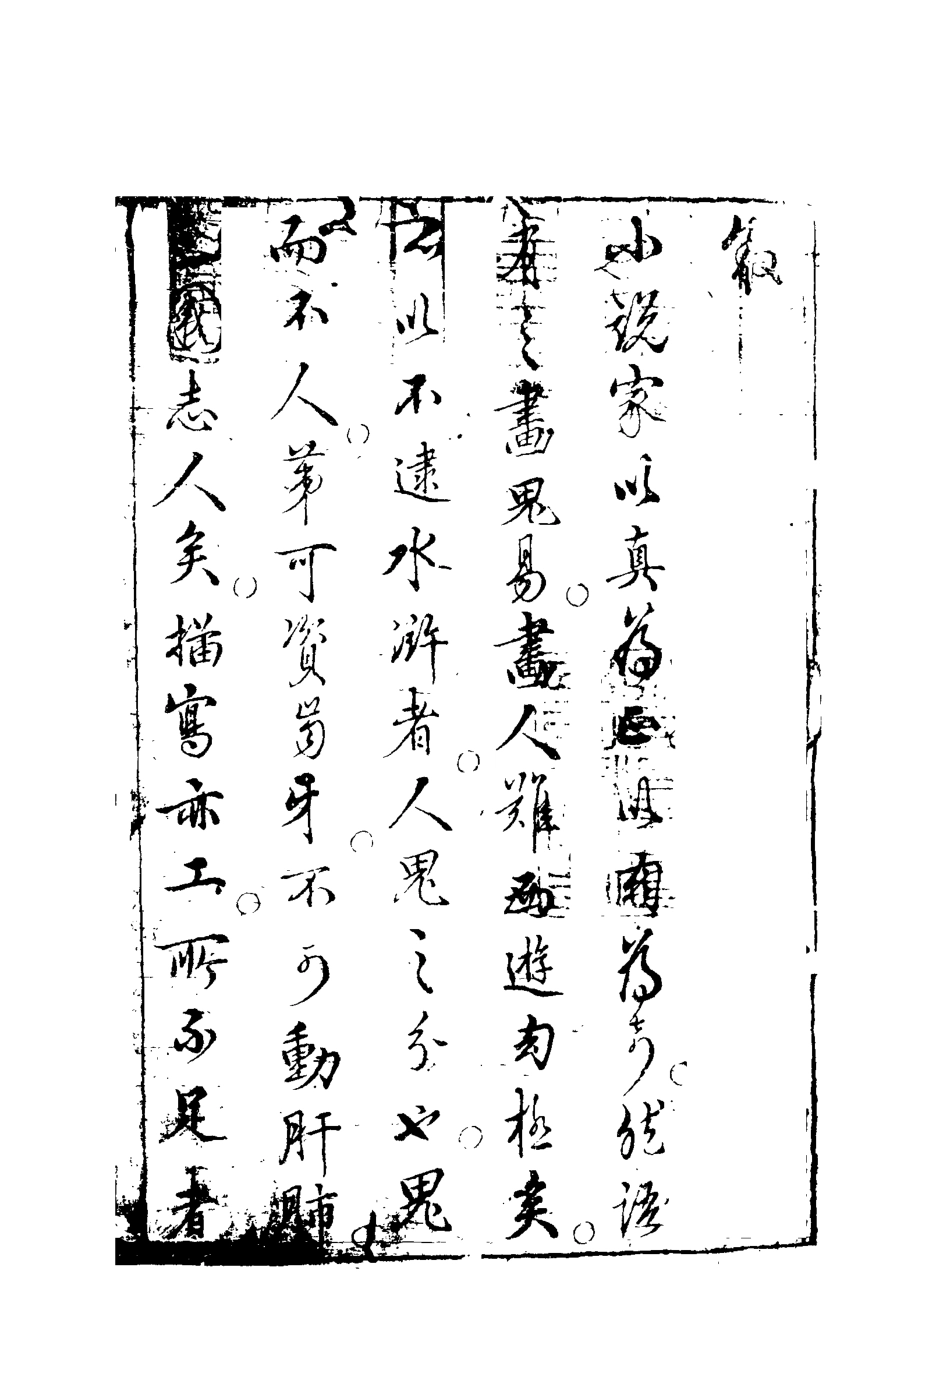 敘
小說家以真為正以幻為奇然語
有之畫鬼易畫人難西遊幻極矣
所以不逮水滸者人鬼之分也鬼
而不人第可資齒牙不可動肝肺
三國志人矣描寫亦工所不足者